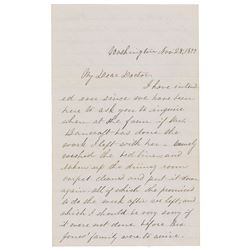 Washington, Nov 28, 1877
My Dear Doctor
I have intend
ed ever since we have been
here to ask you to inquire
when at the farm if Mrs
Bancroft has done the
work I left with her - namely
washed the bed linen and
the dining room
carpet cleaned and put it down
again all of which she promised
to do the week after we left, and
which I should be very sorry if
it were not done before Mr
Jones' family were to arrive.